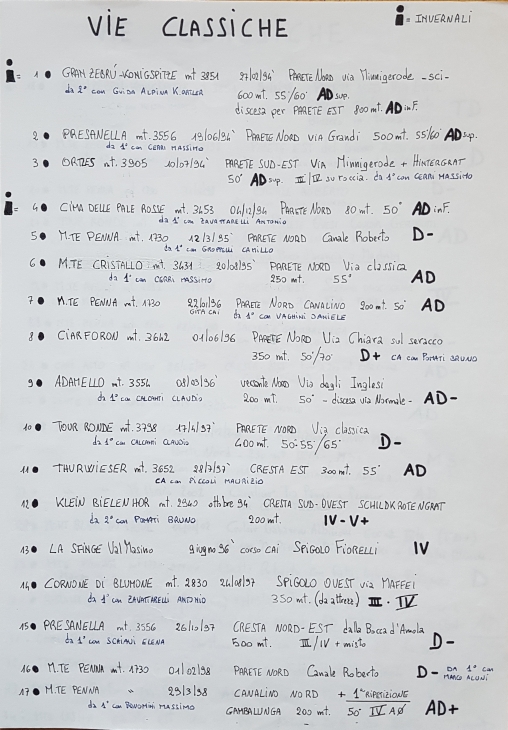 VIE CLASSICHE
i = INVERNALI
i = 1 • GRAN ZEBRÚ-KONIGSPITZE mt 3851 27/02/94' PARETE NORD via Minnigerode -sci-
da 2° con GUIDA ALPINA K.ORTLER 600 mt. 55°/60° AD sup.
discesa per PARETE EST 800 mt. AD inF.
2 • PRESANELLA mt. 3556 19/06/94' PARETE NORD via Grandi 500 mt. 55/60° AD sup.
da 1° con CERRI MASSIMO
3 • ORTLES mt. 3905 10/07/94' PARETE SUD-EST VIA Minnigerode + HINTERGRAT
50° AD sup. III/IV su roccia. da 1° con CERRI MASSIMO
i = 4 • CIMA DELLE PALE ROSSE mt. 3453 04/12/94 PARETE NORD 80 mt. 50° AD inF.
da 1° con ZAVATTARELLI ANTONIO
5 • M.TE PENNA mt. 1730 12/3/95' PARETE NORD Canale Roberto D-
da 1° con GROPPELLI CAMILLO
6 • M.TE CRISTALLO mt. 3431 20/08/95' PARETE NORD Via classica
da 1° con CERRI MASSIMO 250 mt. 55° AD
7 • M.TE PENNA mt. 1730 22/01/96 PARETE NORD CANALINO 200 mt. 50° AD
GITA CAI da 1° con VAGHINI DANIELE
8 • CIARFORON mt. 3642 01/06/96 PARETE NORD Via Chiara sul seracco
350 mt. 50°/70° D+ CA con POMATI BRUNO
9 • ADAMELLO mt. 3554 08/09/96' versante NORD Via degli Inglesi
da 1° con CALCHHI CLAUDIO 200 mt. 50° - discesa via Normale - AD-
10 • TOUR RONDE mt. 3798 17/4/97' PARETE NORD Via classica
da 1° con CLAUDIO 400 mt. 50°-55°/65° D-
11 • THURWIESER mt. 3652 28/7/97' CRESTA EST 300 mt. 55° AD
CA con PICCOLI MAURIZIO
12 • KLEIN BIELENHOR mt. 2940 ottobre 94' CRESTA SUD-OVEST SCHILDKROTENGRAT
da 2° con POMATI BRUNO 200 mt. IV - V+
13 • LA SFINGE Val Masino giugno 96' corso CAI SPIGOLO FIORELLI IV
14 • CORNONE DI BLUMONE mt. 2830 24/08/97 SPIGOLO OVEST via MAFFEI
da 1° con ZAVATTARELLI ANTONIO 350 mt. (da attrezz) III - IV
15 • PRESANELLA mt. 3556 26/10/97 CRESTA NORD-EST dalla Bocca d'Amola
da 1° con SCHIAVI ELENA 500 mt. III/IV + misto D-
16 • M.TE PENNA mt. 1730 01/02/98 PARETE NORD Canale Roberto D- DA 1° con
MARCO ALUNI
17 • M.TE PENNA " 29/3/98 CANALINO NORD + 1a RIPETIZIONE
da 1° con MASSIMO GAMBALUNGA 200 mt. 50° IV A0 AD+